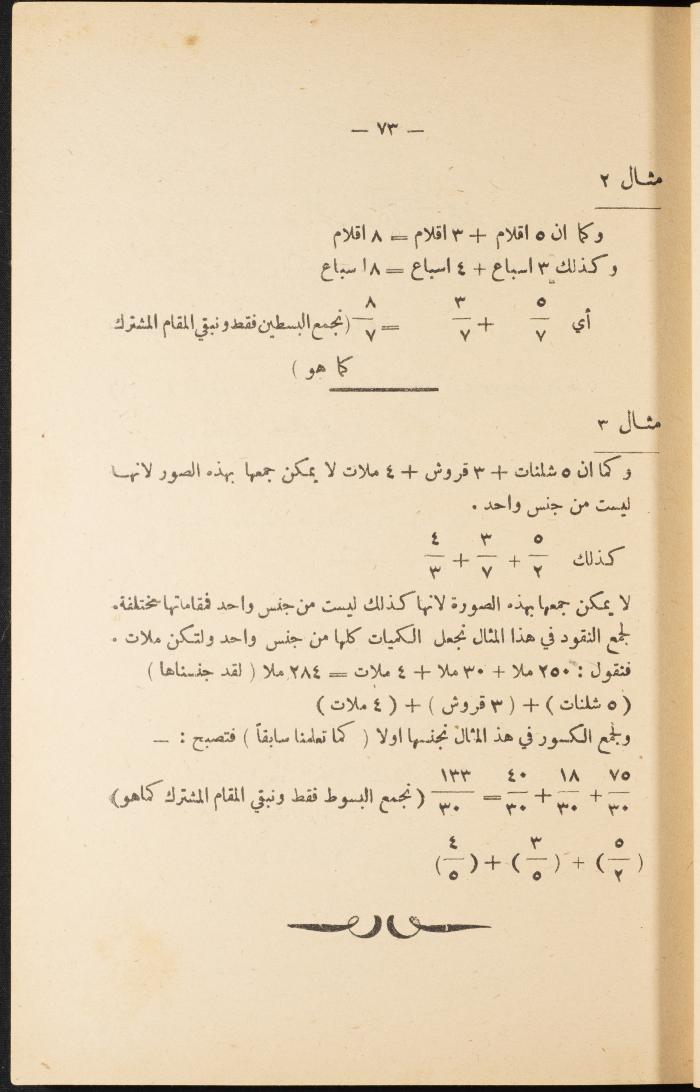 — ٧٣ —
مثال ٢
وكما ان ٥ اقلام + ٣ اقلام = ٨ اقلام
وكذلك ٣ اسباع + ٤ اسباع = ٨ اسباع
أي ٥/٧ + ٣/٧ = ٨/٧ (نجمع البسطين فقط ونبقي المقام المشترك
كما هو )
مثال ٣
وكما ان ٥ شلنات + ٣ قروش + ٤ ملات لا يمكن جمعها بهذه الصور لانها
ليست من جنس واحد .
كذلك ٥/٢ + ٣/٧ + ٤/٣
لا يمكن جمعها بهذه الصورة لانها كذلك ليست من جنس واحد فمقاماتها مختلفة.
لجمع النقود في هذا المثال نجعل الكميات كلها من جنس واحد ولتكن ملات .
فنقول : ٢٥٠ ملا + ٣٠ ملا + ٤ ملات = ٢٨٤ ملا ( لقد جنسناها )
( ٥ شلنات ) + ( ٣ قروش ) + ( ٤ ملات )
ولجمع الكسور في هذ المثال نجنسها اولا ( كما تعلمنا سابقاً ) فتصبح : —
٧٥/٣٠ + ١٨/٣٠ + ٤٠/٣٠ = ١٣٣/٣٠ ( نجمع البسوط فقط ونبقي المقام المشترك كماهو)
( ٥/٢ ) + ( ٣/٥ ) + ( ٤/٥ )